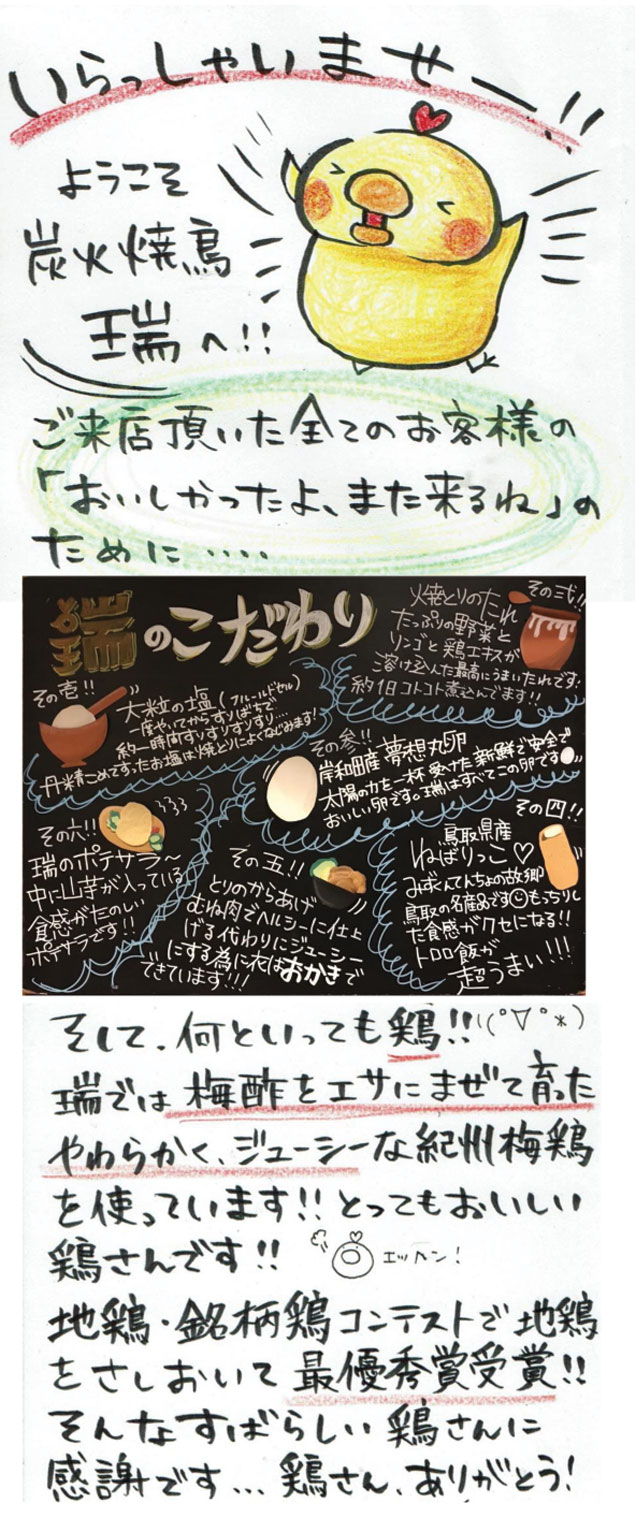 いらっしゃいませー!!
ようこそ
炭火焼鳥
瑞へ!!
ご来店頂いた全てのお客様の
「おいしかったよ、また来るね」の
ために‥‥
瑞のこだわり
その壱!!
大粒の塩(フルールドセル)
一度やいてからすりばちで
約一時間すりすりすりすり…
丹精こめてすったお塩は焼とりによくなじみます!
その弐!!
火焼とりのたれ
たっぷりの野菜と
リンゴと鶏エキスが
溶け込んだ最高にうまいたれです!
約1日コトコト煮込んでます!!
その参!!
岸和田産 夢想丸卵
太陽の力を一杯受けた新鮮で安全で
おいしい卵です。瑞はすべてこの卵です
その四!!
鳥取県産
ねばりっこ♡
みずくんてんちょの故郷
鳥取の名産品です☺もっちりし
た食感がクセになる!!
トロロ飯が
超うまい!!!
その五!!
とりのからあげ
むね肉でヘルシーに仕上
げる代わりにジューシー
にする為に衣はおかきで
できています!!!
その六!!
瑞のポテサラ〜
中に山芋が入っている
食感がたのしい
ポテサラです!!
そして、何といっても鶏!!\(°∇°*)
瑞では梅酢をエサにまぜて育った
やわらかく、ジューシーな紀州梅鶏
を使っています!!とってもおいしい
鶏さんです!!
エッヘン!
地鶏・銘柄鶏コンテストで地鶏
をさしおいて最優秀賞受賞!!
そんなすばらしい鶏さんに
感謝です…鶏さん、ありがとう!